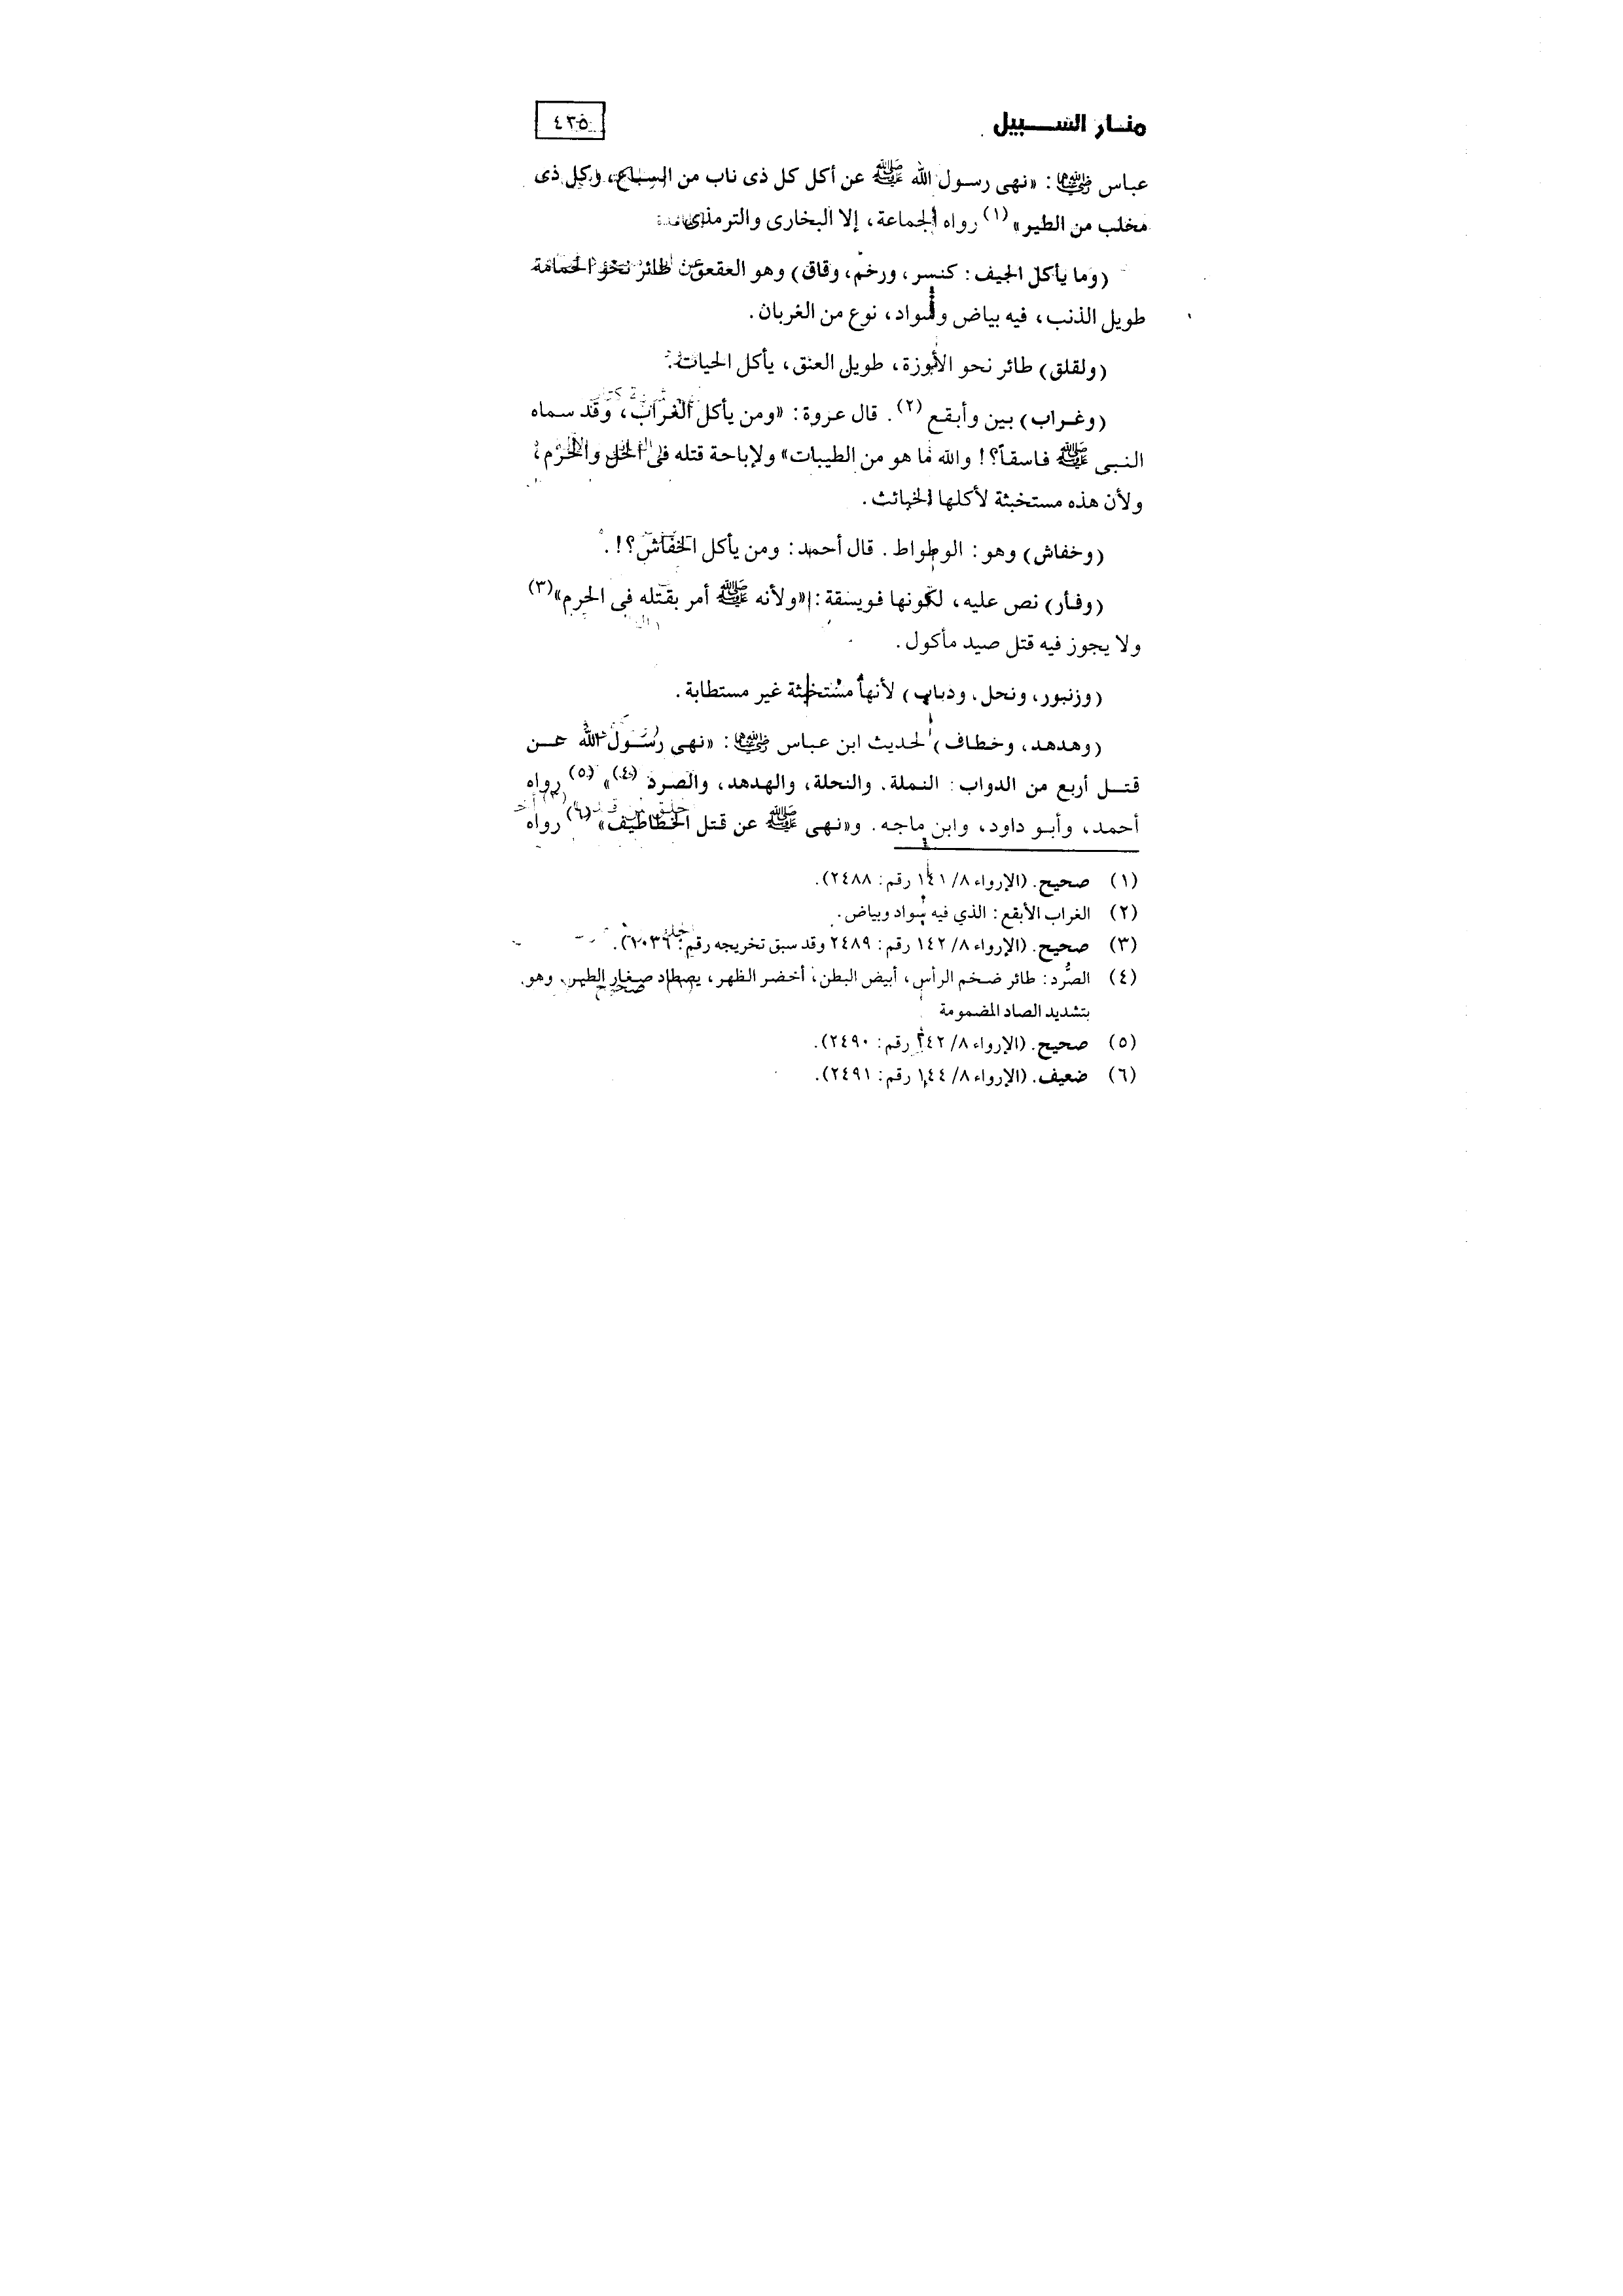 منار السبيل
٤٣٥
عباس رضي الله عنهما: «نهى رسول الله ﷺ عن أكل كل ذى ناب من السباع، وكل ذى
مخلب من الطير» (١) رواه الجماعة، إلا البخارى والترمذى
(وما يأكل الجيف: كنسر، ورخم، وقاق) وهو العقعق طائر نحو الحمامة
طويل الذنب، فيه بياض وسواد، نوع من الغربان.
(ولقلق) طائر نحو الأوزة، طويل العنق، يأكل الحيات.
(وغراب) بين وأبقع (٢). قال عروة: «ومن يأكل الغراب، وقد سماه
النبى ﷺ فاسقاً؟! والله ما هو من الطيبات» ولإباحة قتله فى الحل والحرم،
ولأن هذه مستخبثة لأكلها الخبائث.
(وخفاش) وهو: الوطواط. قال أحمد: ومن يأكل الخفاش؟!.
(وفأر) نص عليه، لكونها فويسقة: «ولأنه ﷺ أمر بقتله فى الحرم» (٣)
ولا يجوز فيه قتل صيد مأكول.
(وزنبور، ونحل، وذباب) لأنها مستخبثة غير مستطابة.
(وهدهد، وخطاف) لحديث ابن عباس رضي الله عنهما: «نهى رسول الله عن
قتل أربع من الدواب: النملة، والنحلة، والهدهد، والصرد (٤)» (٥) رواه
أحمد، وأبو داود، وابن ماجه. و«نهى ﷺ عن قتل الخطاطيف» (٦) رواه
(١) صحيح. (الإرواء ٨/ ١٤١ رقم: ٢٤٨٨).
(٢) الغراب الأبقع: الذي فيه سواد وبياض.
(٣) صحيح. (الإرواء ٨/ ١٤٢ رقم: ٢٤٨٩ وقد سبق تخريجه رقم: ١٠٣٦).
(٤) الصُّرد: طائر ضخم الرأس، أبيض البطن، أخضر الظهر، يصطاد صغار الطير. وهو
بتشديد الصاد المضمومة
(٥) صحيح. (الإرواء ٨/ ١٤٢ رقم: ٢٤٩٠).
(٦) ضعيف. (الإرواء ٨/ ١٤٤ رقم: ٢٤٩١).